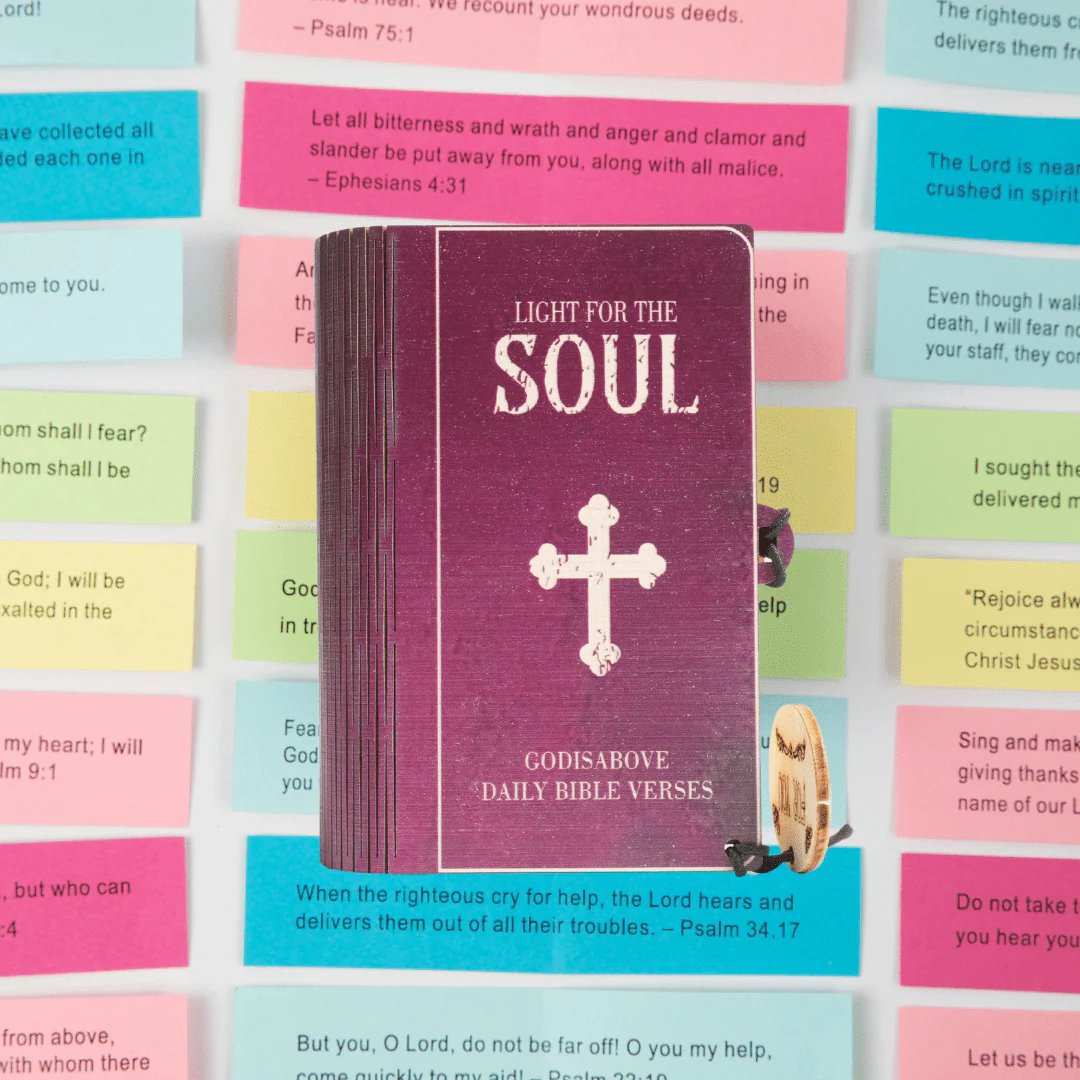 ord!
is near. We recount your wondrous deeds.
– Psalm 75:1
The righteous c
delivers them fro
ave collected all
ded each one in
Let all bitterness and wrath and anger and clamor and
slander be put away from you, along with all malice.
– Ephesians 4:31
The Lord is near
crushed in spirit
ome to you.
An
th
Fa
ing in
the
Even though I walk
death, I will fear no
your staff, they com
LIGHT FOR THE
SOUL
om shall I fear?
hom shall I be
19
I sought the
delivered m
God; I will be
xalted in the
God
in tr
elp
“Rejoice alw
circumstanc
Christ Jesus
my heart; I will
lm 9:1
Fea
God
you
u
Sing and mak
giving thanks
name of our L
GODISABOVE
DAILY BIBLE VERSES
, but who can
:4
When the righteous cry for help, the Lord hears and
delivers them out of all their troubles. – Psalm 34.17
Do not take t
you hear you
from above,
with whom there
But you, O Lord, do not be far off! O you my help,
come quickly to my aid! – Psalm 22:19
Let us be th